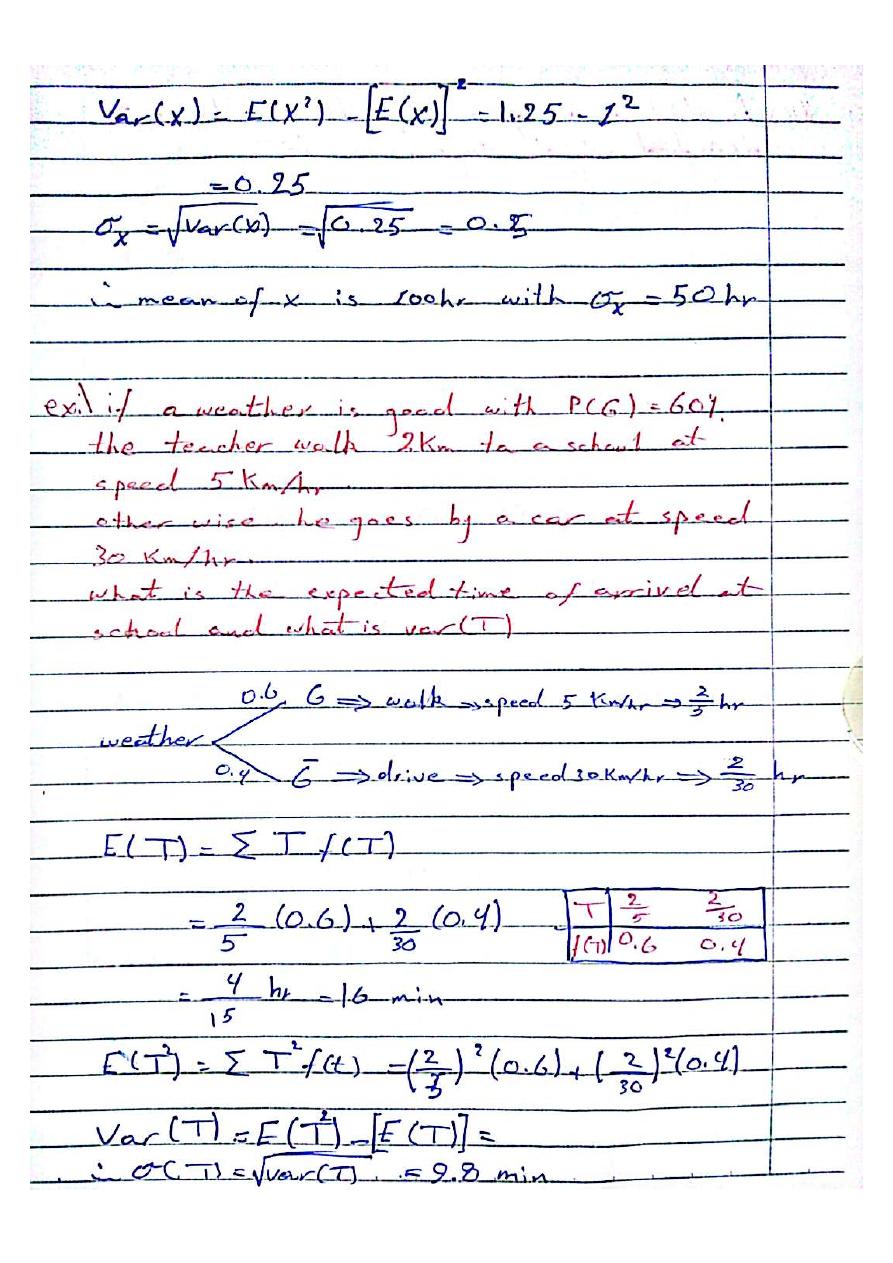 Var(x) = E(X²) - [E(x)]² = 1.25 - 1²
= 0.25
σx = √Var(x) = √0.25 = 0.5
∴ mean of x is 100hr with σx = 50 hr
ex:\ if a weather is good with P(G) = 60%.
the teacher walk 2Km to a school at
speed 5 Km/hr
other wise he goes by a car at speed
30 Km/hr.
what is the expected time of arrivel at
school and what is var(T)
0.6 G ⇒ walk ⇒ speed 5 Km/hr ⇒ 2/5 hr
weather
0.4 G̅ ⇒ drive ⇒ speed 30 Km/hr ⇒ 2/30 hr
E(T) = Σ T f(T)
= 2/5 (0.6) + 2/30 (0.4)
T 2/5 2/30
f(T) 0.6 0.4
= 4/15 hr = 16 min
E(T²) = Σ T² f(t) = (2/5)² (0.6) + (2/30)² (0.4)
Var(T) = E(T²) - [E(T)] =
∴ σ(T) = √var(T) = 9.8 min